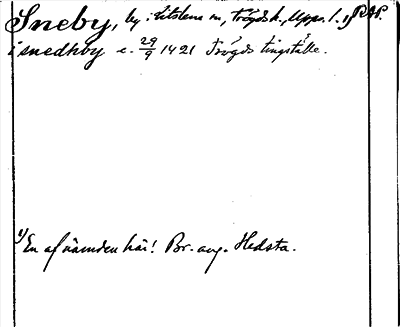 Sneby, by i Litslena sn, Trögds h, Upps. l. 1) RAP.
i snedhby c. 29/9 1421 Trögds tingställe.
1) En af nämnden här! Br. ang. Hedsta.